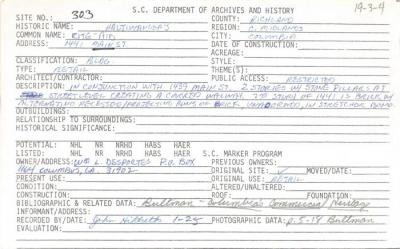 19-3-4
S.C. DEPARTMENT OF ARCHIVES AND HISTORY
SITE NO.: 303 COUNTY: RICHLAND
HISTORIC NAME: HALTIWANGER'S REGION: C. MIDLANDS
COMMON NAME: RITE-AID CITY: COLUMBIA
ADDRESS: 1441 MAIN ST. DATE OF CONSTRUCTION:
ACREAGE:
CLASSIFICATION: BLDG STYLE:
TYPE: RETAIL THEME(S):
ARCHITECT/CONTRACTOR: PUBLIC ACCESS: RESTRICTED
DESCRIPTION: IN CONJUNCTION WITH 1439 MAIN ST. 2 STORIES W/ STONE PILLARS AT
STREET LEVEL CREATING A COVERED WALKWAY. 2ND STORY OF 1441 IS BRICK W/
ALTERNATING RECESSED/PROJECTING ROWS OF BRICK, UNADORNED, IN STRETCHER BOND.
OUTBUILDINGS:
RELATIONSHIP TO SURROUNDINGS:
HISTORICAL SIGNIFICANCE:
POTENTIAL: NHL NR NHRD HABS HAER
LISTED: NHL NR NHRD HABS HAER S.C. MARKER PROGRAM
OWNER/ADDRESS: WM L. DESPORTES P.O. BOX PREVIOUS OWNERS:
1164 COLUMBUS, GA. 31902 ORIGINAL SITE: ✓ MOVED/DATE:
PRESENT USE: ORIGINAL USE: RETAIL
CONDITION: ALTERED/UNALTERED:
CONSTRUCTION: ROOF: FOUNDATION:
BIBLIOGRAPHIC & RELATED DATA: Bultman - Columbia's Commercial Heritage
INFORMANT/ADDRESS:
RECORDED BY/DATE: John Hildreth 1-25 PHOTOGRAPHIC DATA: p. 5-18 Bultman
EVALUATION: